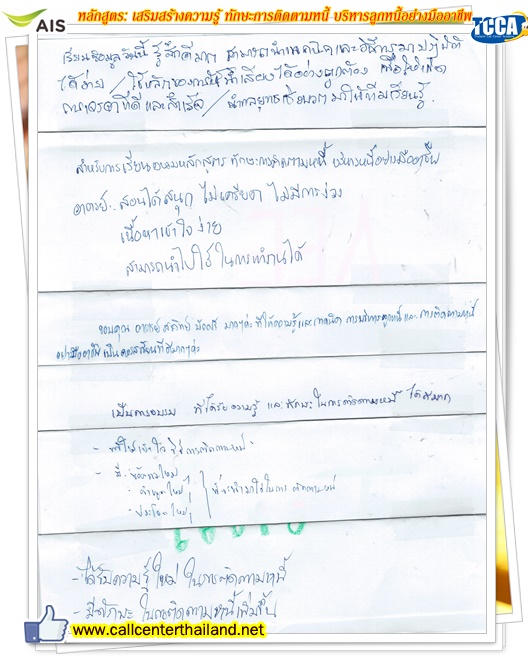 AIS
หลักสูตร: เสริมสร้างความรู้ ทักษะการติดตามหนี้ บริหารลูกหนี้อย่างมืออาชีพ
TCCA
เรียนข้อมูลวันนี้ รู้สึกดีมาก สามารถนำเทคนิคและวิธีการมาปรับใช้
ได้ง่าย / ใช้หลักของการใช้น้ำเสียงได้อย่างถูกต้อง เพื่อให้เกิด
การเจรจาที่ดีและสำเร็จ / นำกลยุทธ มาให้ทีมเรียนรู้
สำหรับการเรียนอบรมหลักสูตร ทักษะการติดตามหนี้ บริหารหนี้อย่างมืออาชีพ
อาจารย์.. สอนได้สนุก ไม่เครียด ไม่มีการง่วง
เนื้อหาเข้าใจง่าย
สามารถนำไปใช้ในการทำงานได้
ขอบคุณ อาจารย์ มากๆค่ะ ที่ให้ความรู้และเทคนิค การบริหารลูกหนี้ และ การติดตามหนี้
อย่างมืออาชีพ เป็นคอร์สเรียนที่ดีมากๆค่ะ
เป็นการอบรม ที่ได้รับความรู้ และทักษะในการติดตามหนี้ ได้ดีมาก
- ทำให้เข้าใจวิธีการติดตามหนี้
- มี
- คำพูดใหม่
- ประโยคใหม่
ที่จะนำมาใช้ในการติดตามหนี้
- ได้รับความรู้ใหม่ ในการติดตามหนี้
- มีทักษะในการติดตามหนี้เพิ่มขึ้น
www.callcenterthailand.net